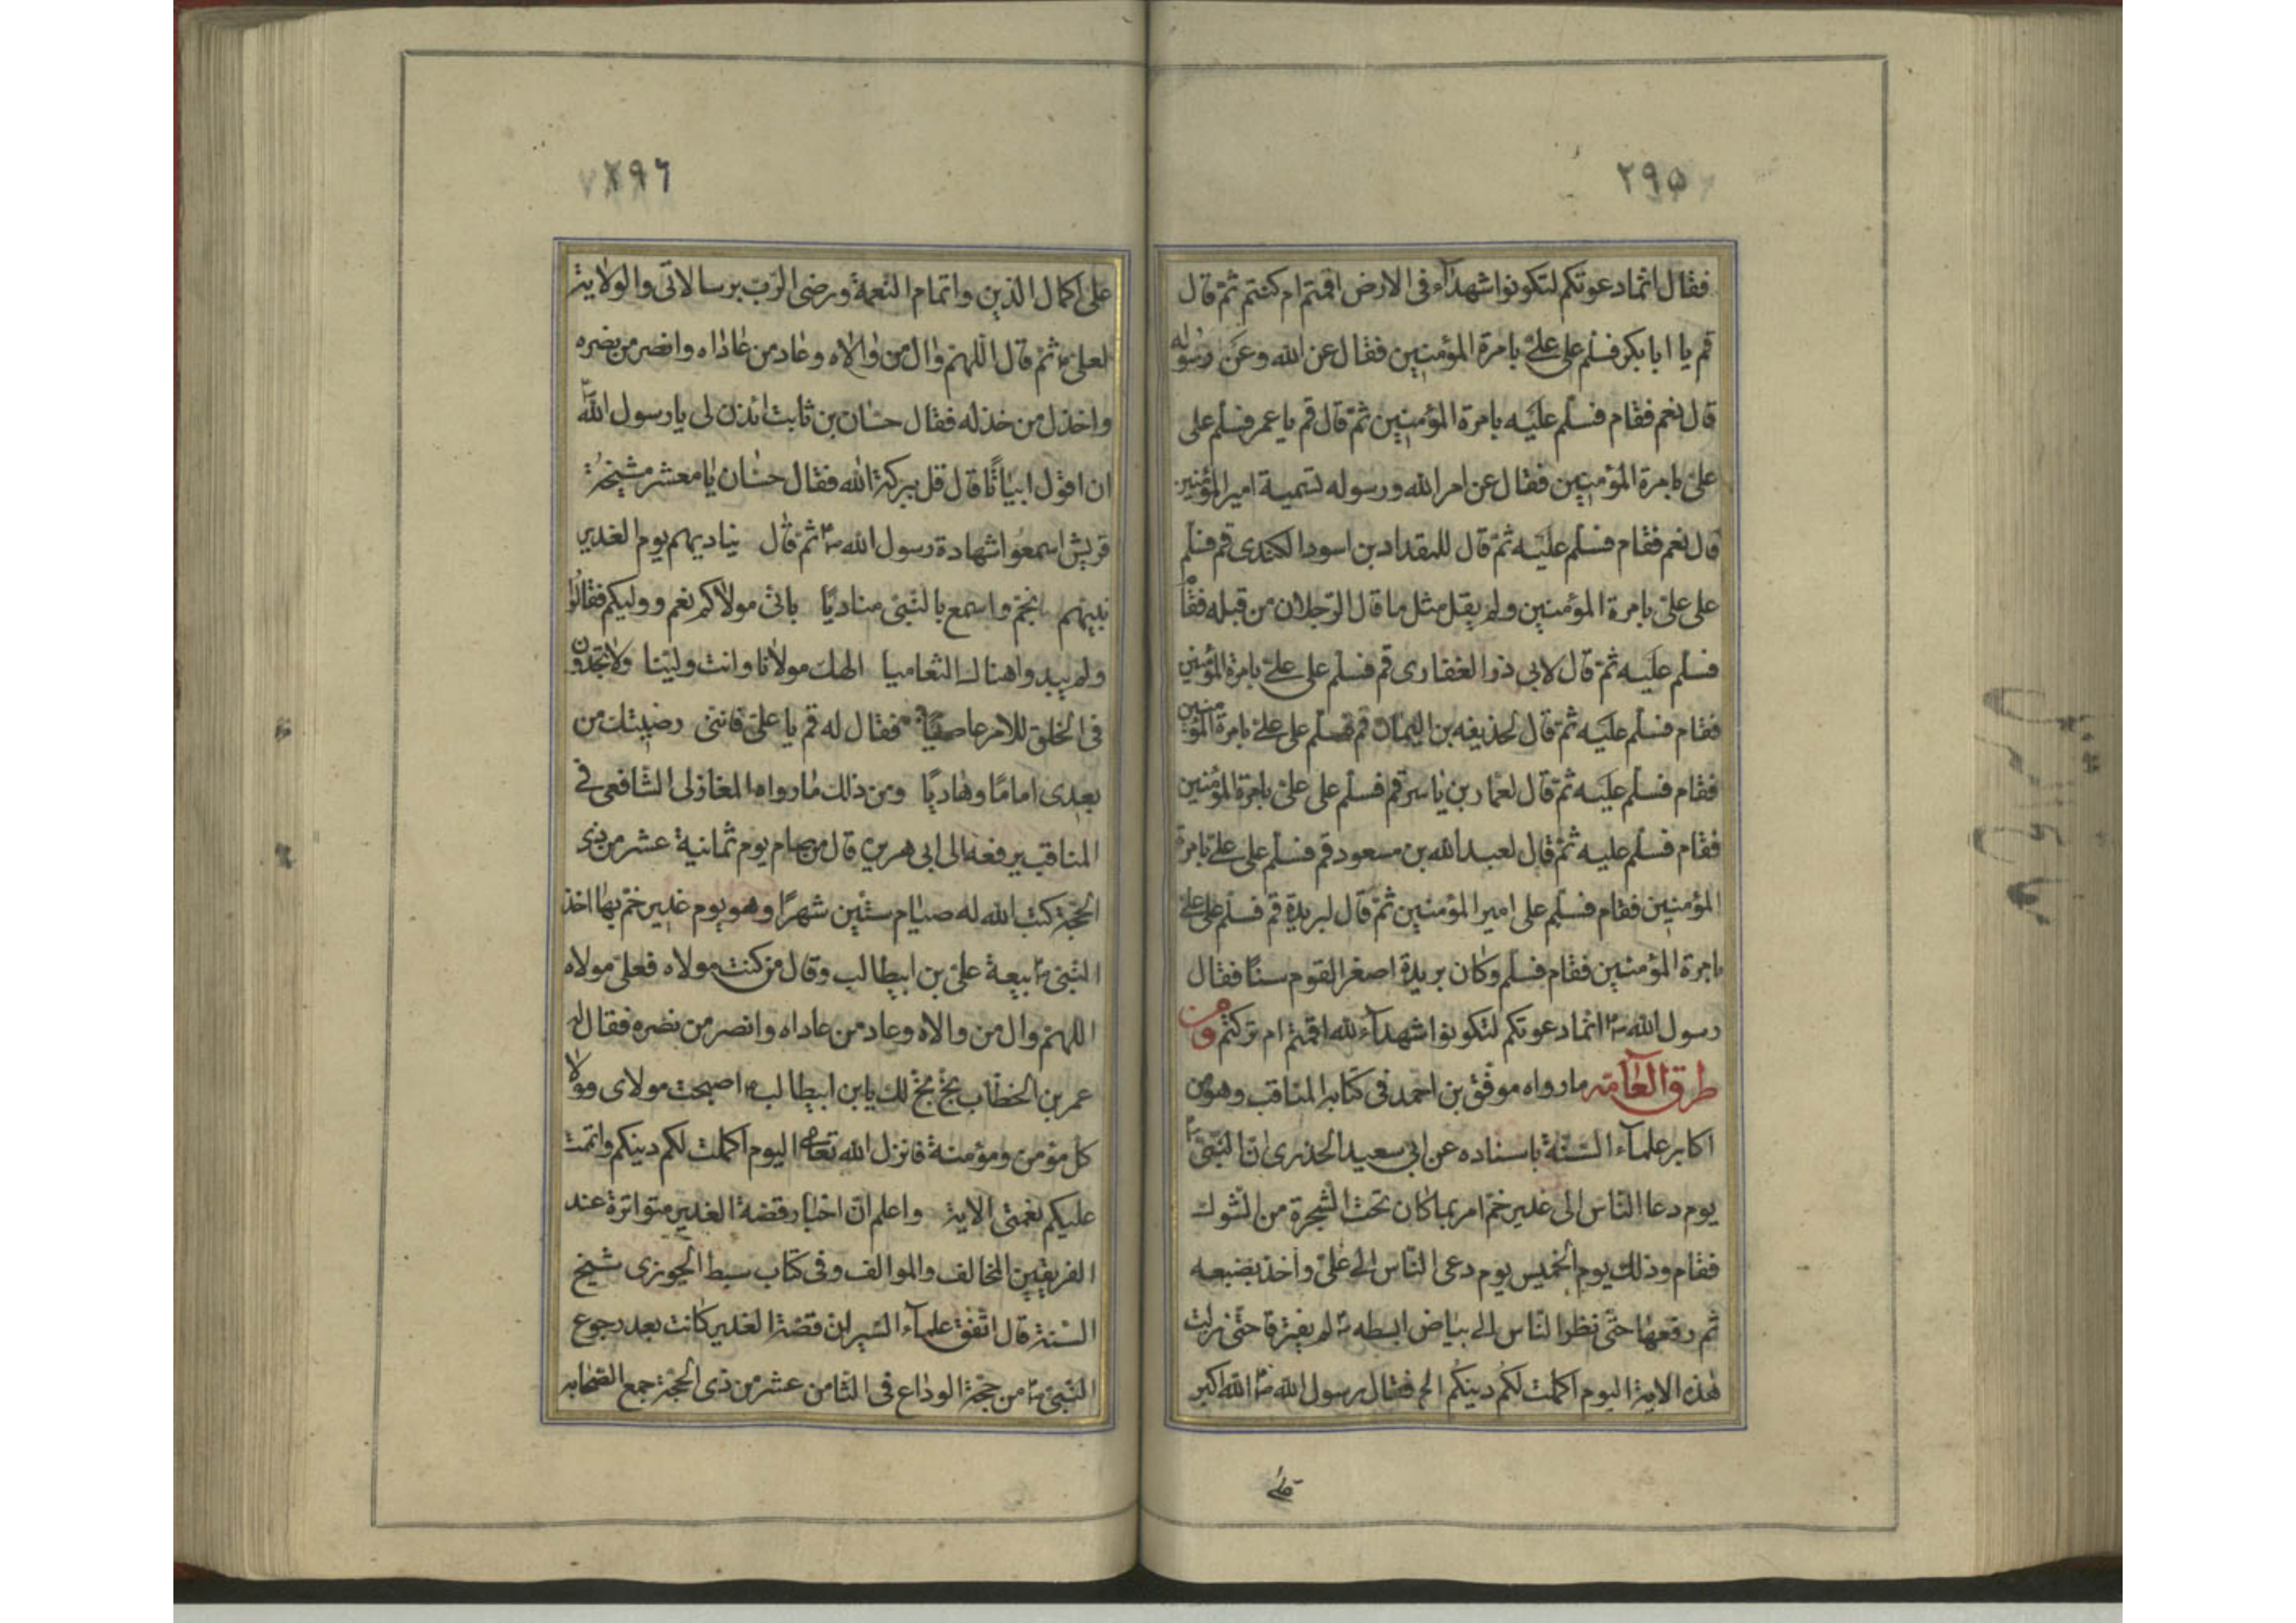 ٢٩٥
فقال انما دعوتكم لتكونوا شهدآء فى الارض اقمتم ام كتمتم ثم قال
قم يا ابا بكر فسلم على علىّ بامرة المؤمنين فقال عن الله وعن رسوله
قال نعم فقام فسلم عليه بامرة المؤمنين ثم قال قم يا عمر فسلم على
علىّ بامرة المؤمنين فقال عن امر الله ورسوله تسمية امير المؤمنين
قال نعم فقام فسلم عليه ثم قال للمقداد بن اسود الكندى قم فسلم
على علىّ بامرة المؤمنين ولم يقل مثل ما قال الرّجلان من قبله فقام
فسلم عليه ثم قال لابى ذر الغفارى قم فسلم على علىّ بامرة المؤمنين
فقام فسلم عليه ثم قال لحذيفه بن اليمان قم فسلم على علىّ بامرة المؤمنين
فقام فسلم عليه ثم قال لعمّار بن ياسر قم فسلم على علىّ بامرة المؤمنين
فقام فسلم عليه ثم قال لعبد الله بن مسعود قم فسلم على علىّ بامرة
المؤمنين فقام فسلم على امير المؤمنين ثم قال لبريدة قم فسلم على علىّ
بامرة المؤمنين فقام فسلم وكان بريدة اصغر القوم سنّا فقال
رسول الله ص انما دعوتكم لتكونوا شهدآء لله اقمتم ام تركتم ومن
طرق العآمّه مارواه موفّق بن احمد فى كتابه المناقب وهو من
اكابر علمآء السّنّة باسناده عن ابى سعيد الخدرى انّ النّبىّ ص
يوم دعا النّاس الى غدير خمّ امر بما كان تحت الشّجرة من الشّوك
فقام وذلك يوم الخميس يوم دعى النّاس الى علىّ واخذ بضبعه
ثم رفعها حتّى نظر النّاس الى بياض ابطه ص لم يفترقا حتّى نزلت
هذه الاية اليوم اكملت لكم دينكم الخ فقال رسول الله ص الله اكبر
على
٢٩٦
على اكمال الدّين واتمام النّعمة ورضى الرّب برسالاتى والولاية
لعلىّ ثم قال اللهم وال من والاه وعاد من عاداه وانصر من نصره
واخذل من خذله فقال حسّان بن ثابت ائذن لى يا رسول الله ص
ان اقول ابياتًا قال قل ببركة الله فقال حسّان يا معشر مشيخة
قريش اسمعوا شهادة رسول الله ص ثم قال يناديهم يوم الغدير
نبيهم بخمّ واسمع بالنّبىّ مناديًا بانّى مولاكم نعم ووليكم فقالوا
ولم يبدوا هناك التّعاميا الهك مولانا وانت وليّنا ولا تجدون
فى الخلق للامر عاصيًا فقال له قم يا علىّ فانّنى رضيتك من
بعدى امامًا وهاديًا ومن ذلك مارواه المغازلى الشّافعى فى
المناقب يرفعه الى ابى هريرة قال من صام يوم ثمانية عشر من ذى
الحجّة كتب الله له صيام ستّين شهرًا وهو يوم غدير خمّ بها اخذ
النّبىّ ص بيعة علىّ بن ابيطالب وقال من كنت مولاه فعلىّ مولاه
اللهم وال من والاه وعاد من عاداه وانصر من نصره فقال له
عمر بن الخطّاب بخّ بخّ لك يابن ابيطالب اصبحت مولاى ومولا
كل مؤمن ومؤمنة فانزل الله تعالى اليوم اكملت لكم دينكم واتممت
عليكم نعمتى الاية واعلم انّ اخبار قصّة الغدير متواترة عند
الفريقين المخالف والموالف وفى كتاب سبط الجوزى شيخ
السّنة قال اتّفق علمآء السّير ان قصّة الغدير كانت بعد رجوع
النّبىّ ص من حجّة الوداع فى الثّامن عشر من ذى الحجّة جمع الصّحابه